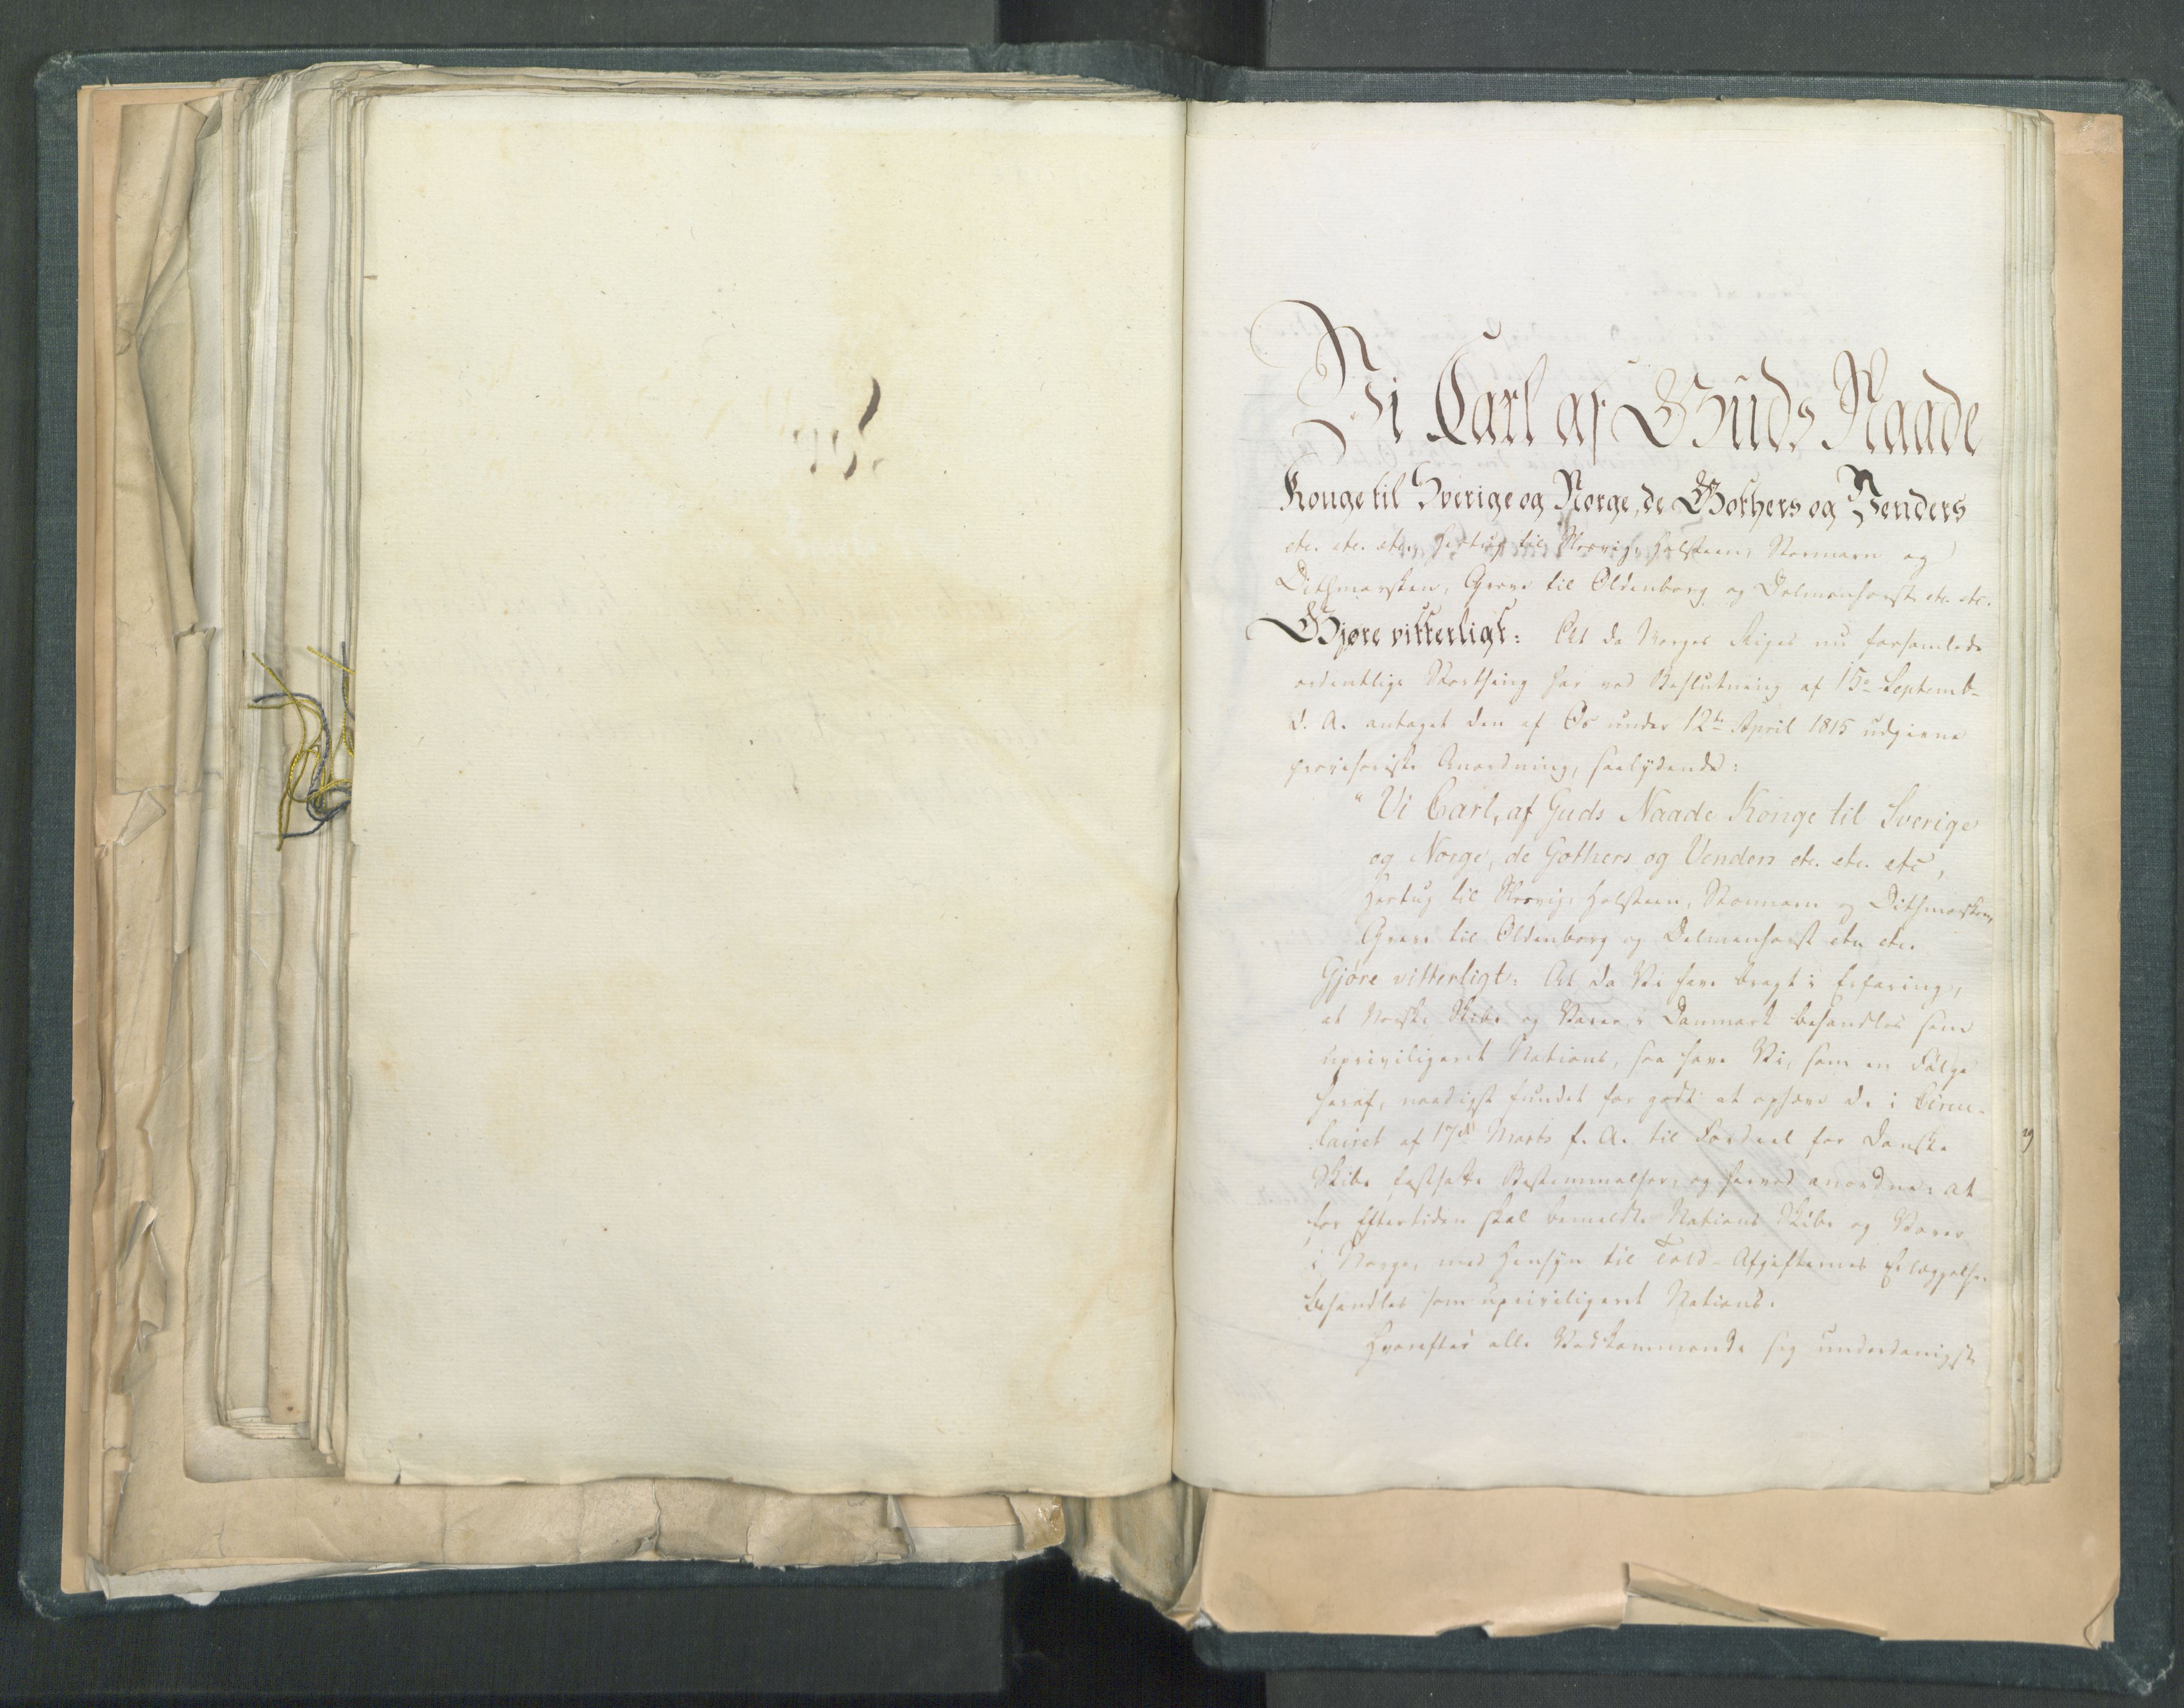 Vi Carl af Guds Naade
Konge til Sverige og Norge, de Gothers og Venders
etc. etc. etc., Hertug til Slesvig, Holsteen, Stormarn og
Dithmarsken, Greve til Oldenborg og Delmenhorst etc. etc.
Gjøre vitterligt: At da Norges Riges nu forsamlede
ordentlige Storthing har ved Beslutning af 15de Septemb-
d. A. antaget den af Os under 12te April 1815 udgivne
provisoriske Anordning, saalydende:
"Vi Carl, af Guds Naade Konge til Sverige
og Norge, de Gothers og Venders etc. etc. etc,
Hertug til Slesvig, Holsteen, Stormarn og Dithmarsken,
Greve til Oldenborg og Delmenhorst etc. etc.
Gjøre vitterligt: At da Vi have bragt i Erfaring,
at Norske Skibe og Varer i Danmark behandles som
upriviligeret Nations, saa have Vi, som en Følge
heraf, naadigst fundet for godt at ophæve de i Circu-
lairet af 17de Marts f. A. til Fordeel for Danske
Skibe fastsatte Bestemmelser, og herved anordne: at
for Eftertiden skal bemeldte Nations Skibe og Varer
i Norge, med Hensyn til Told-Afgifternes Erlæggelse,
behandles som upriviligeret Nations.
Hvorefter alle Vedkommende sig underdanigst